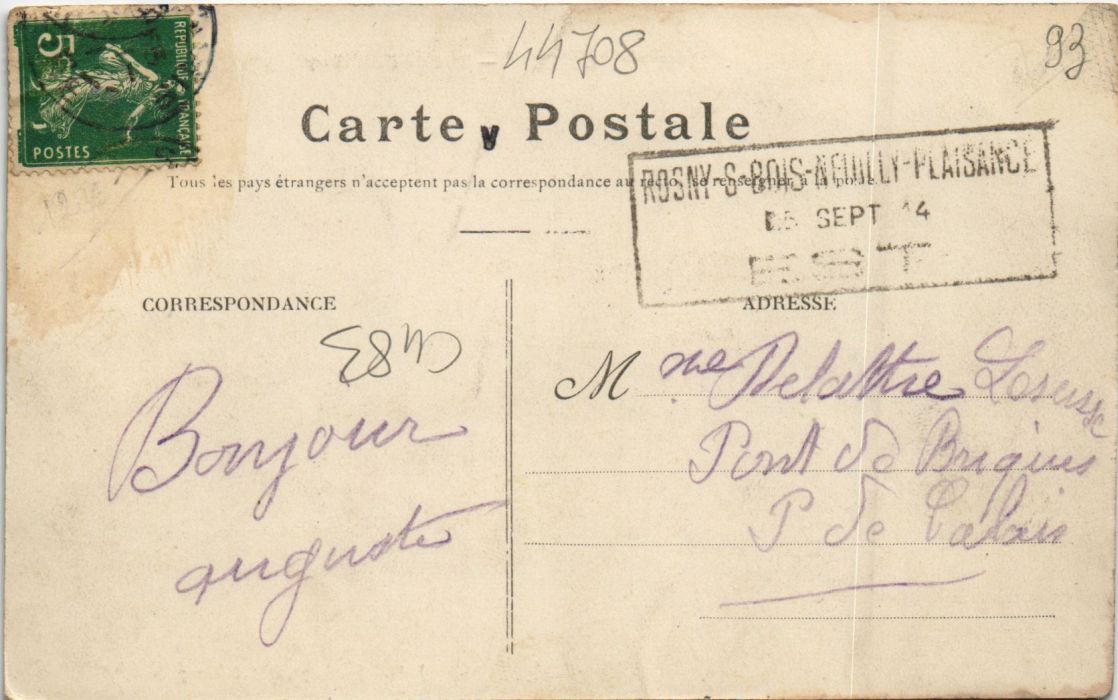 5
REPUBLIQUE FRANÇAISE
POSTES
44708
93
Carte Postale
Tous les pays étrangers n'acceptent pas la correspondance au recto, se renseigner à la poste.
ROSNY-S-BOIS-NEUILLY-PLAISANCE
SEPT 14
EST
CORRESPONDANCE
ADRESSE
Bonjour
auguste
Mme Delattre
Pont de Briques
P de Calais